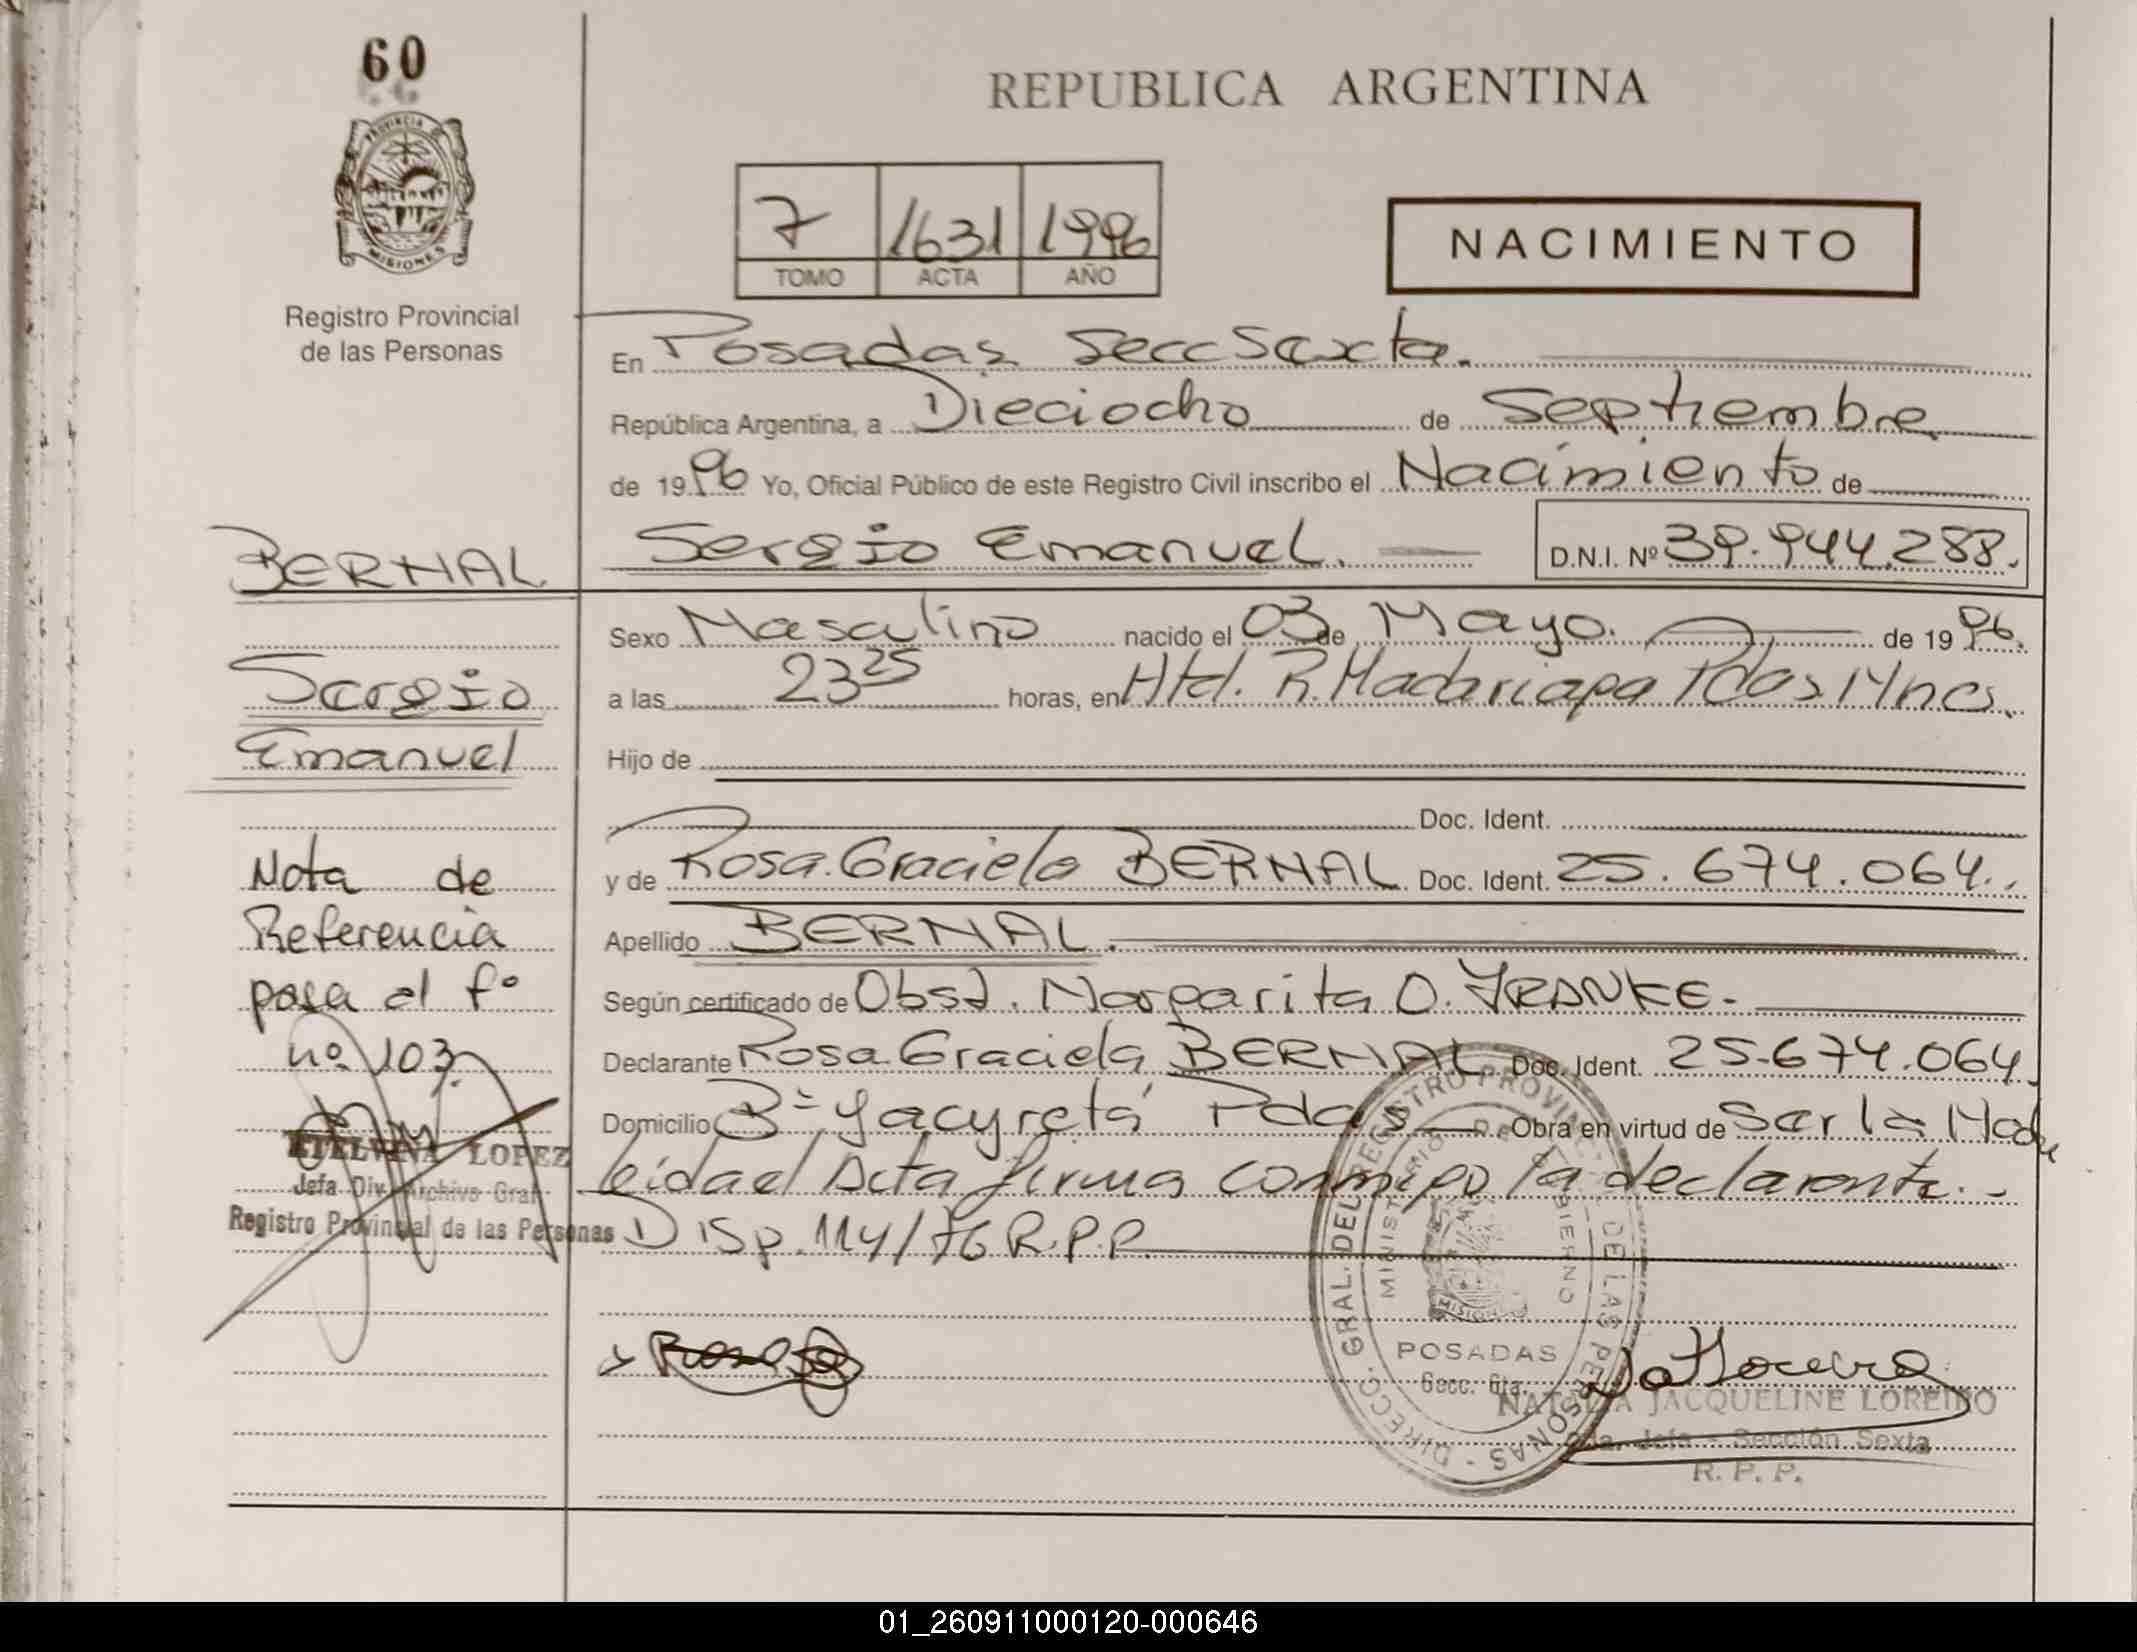 60
REPUBLICA ARGENTINA
PROVINCIA DE
MISIONES
Registro Provincial
de las Personas
7 1631 1996
TOMO ACTA AÑO
NACIMIENTO
En Posadas Secc Sexta.
República Argentina, a Dieciocho de Septiembre
de 1996 Yo, Oficial Público de este Registro Civil inscribo el Nacimiento de
BERNAL
Sergio Emanuel. D.N.I. Nº 39.944.288.
Sexo Masculino nacido el 03 de Mayo. de 1996.
Sergio
a las 23 25 horas, en Htal. R. Madariaga Pdas Mnes.
Emanuel
Hijo de
Doc. Ident.
Nota de
y de Rosa Graciela BERNAL Doc. Ident. 25.674.064.
Referencia
Apellido BERNAL.
pasa al fº
Según certificado de Obst. Margarita O. FRANKE.
nº 103.
Declarante Rosa Graciela BERNAL Doc. Ident. 25.674.064.
Domicilio Bº Yacyretá Pdas Obra en virtud de Ser la Madre
ETELVINA LOPEZ
Jefa Div. Archivo Gral.
Registro Provincial de las Personas
leida el Acta firma conmigo la declarante.
Disp. 114/76 R.P.P.
DIRECC. GRAL. DEL REGISTRO PROVINCIAL DE LAS PERSONAS
MINISTERIO DE GOBIERNO
MISIONES
POSADAS
Secc. 6ta.
NATALIA JACQUELINE LOREIRO
Jefa - Sección Sexta
R. P. P.
01_260911000120-000646